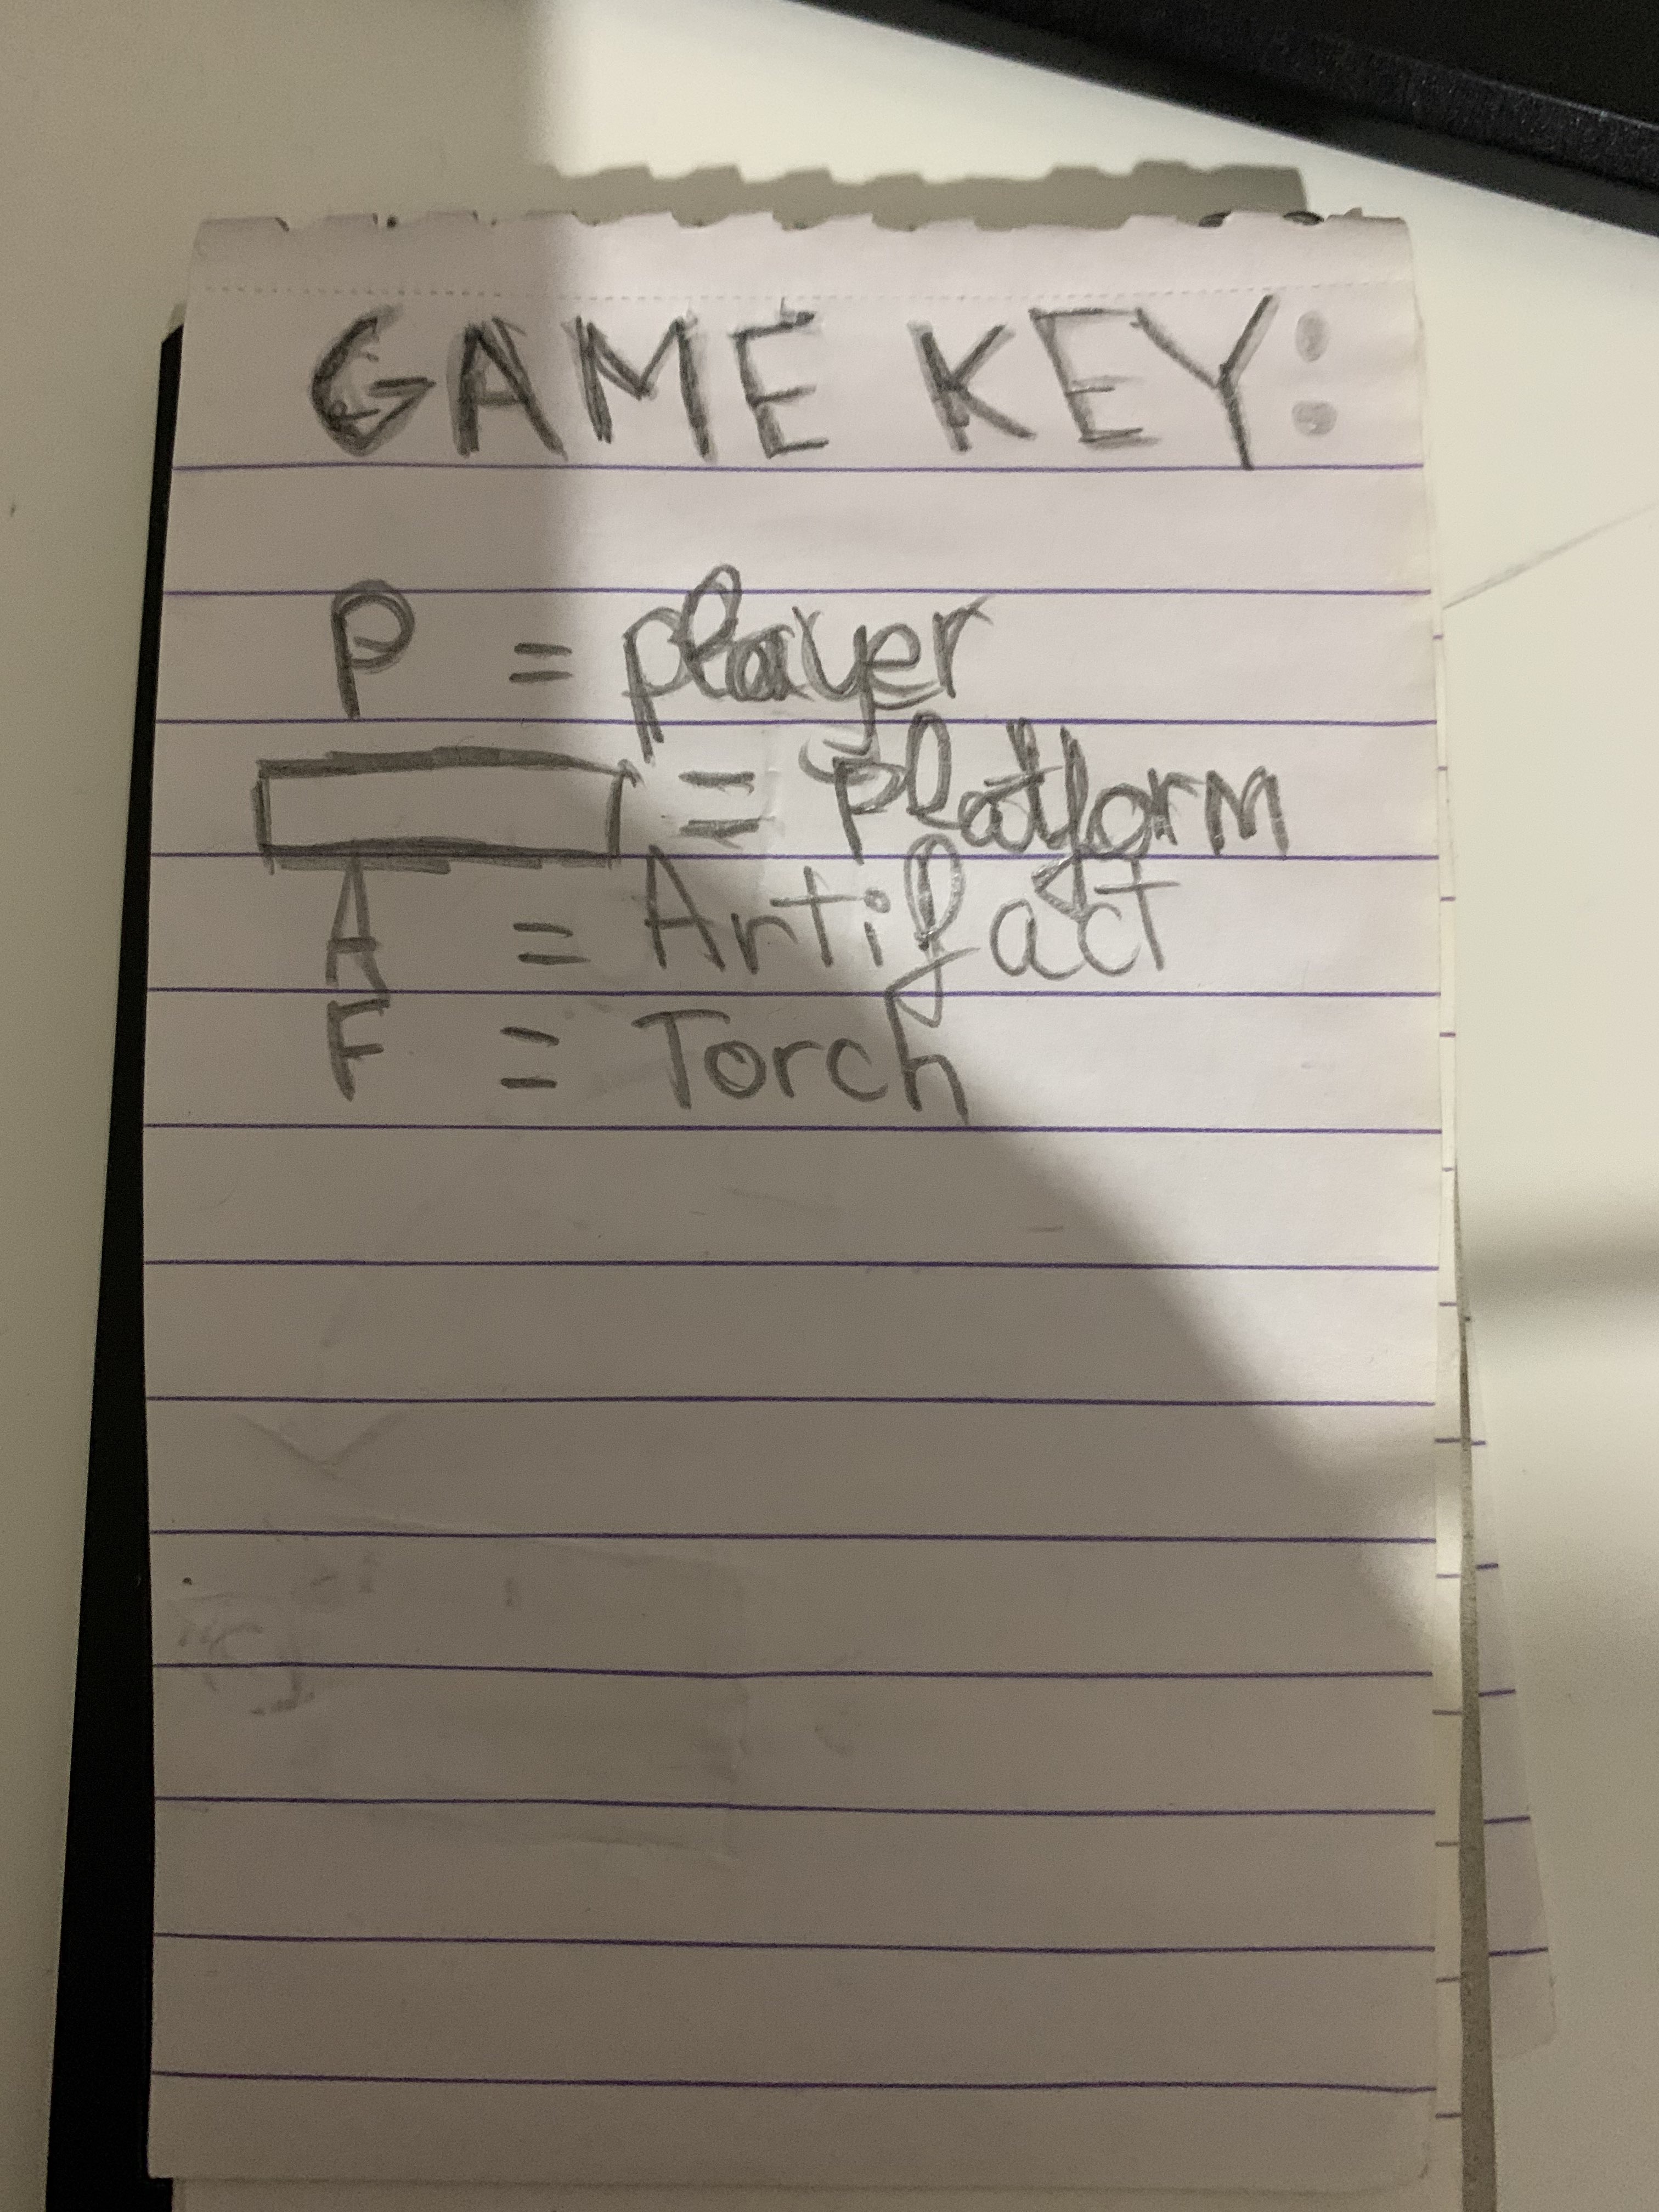 GAME KEY:
P = player
= platform
A = Artifact
F = Torch